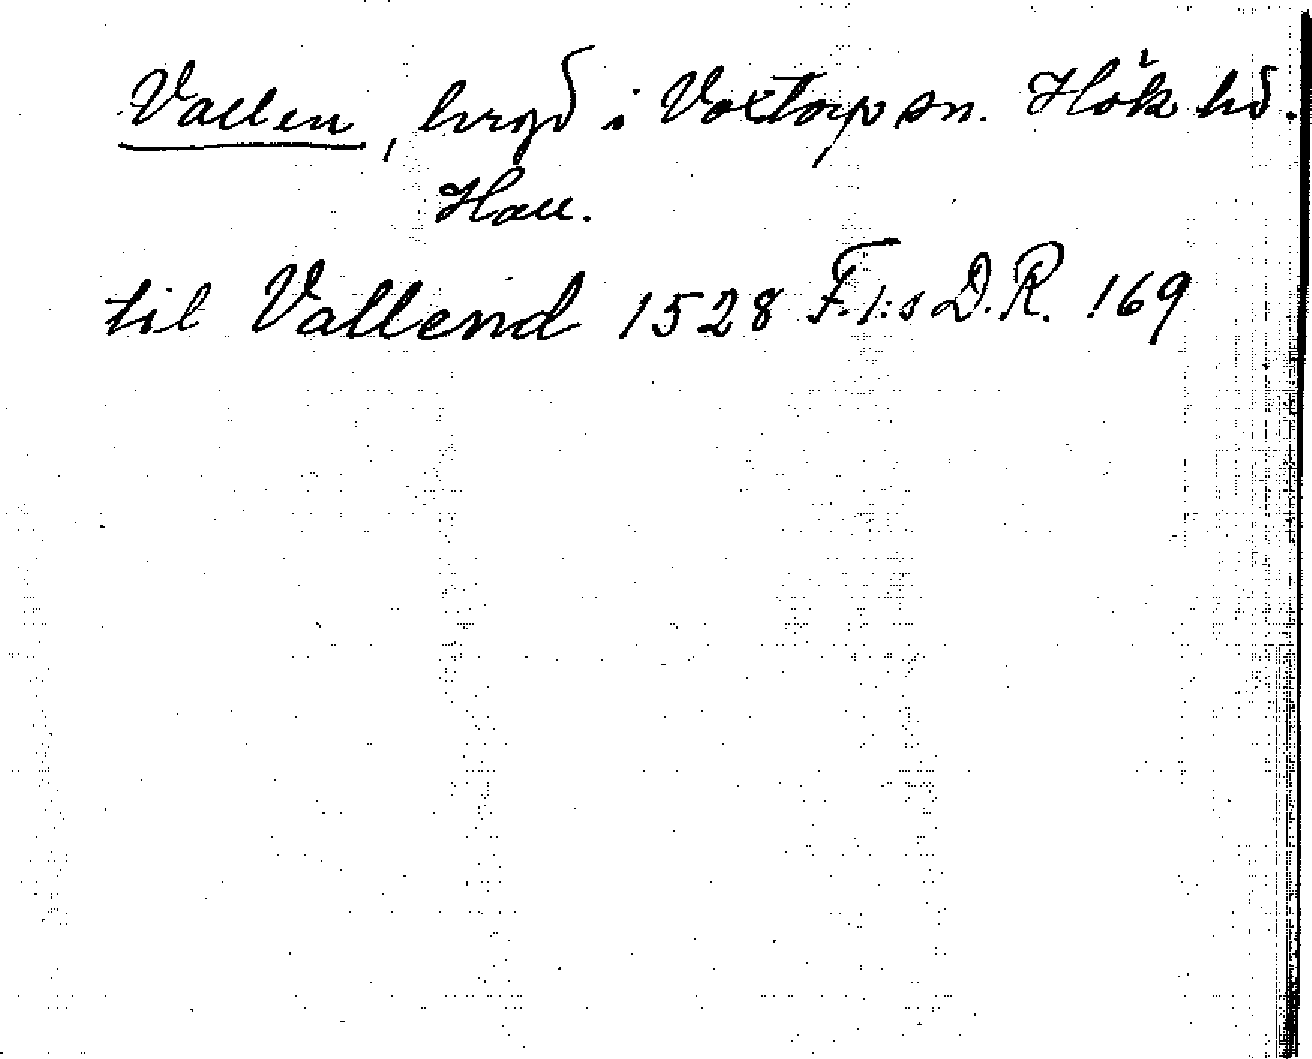 Vallen, bryd i Voxtorp sn. Hök hd.
Hall.
til Vallend 1528 F.I:s D.R. 169